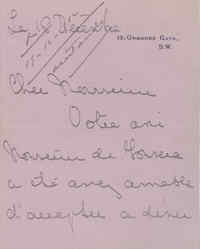 Le 8 Décembre
12, Onslow Gate,
S.W.
Cher Monsieur
Votre ami
Monsieur de
a été assez aimable
d'accepter a dîner